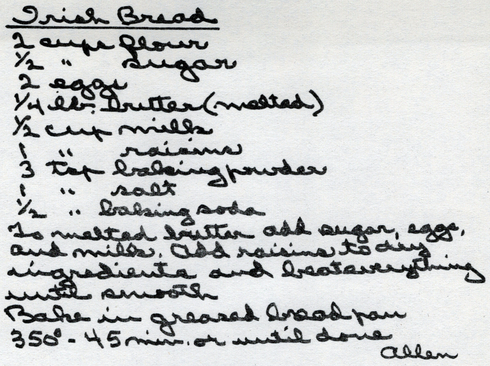 Irish Bread
2 cups flour
1/2 " sugar
2 eggs
1/4 lb. butter (melted)
1/2 cup milk
1 " raisins
3 tsp baking powder
1 " salt
1/2 " baking soda
To melted butter add sugar, eggs,
and milk. Add raisins to dry
ingredients and beat everything
until smooth
Bake in greased bread pan
350° - 45 min. or until done
Allen